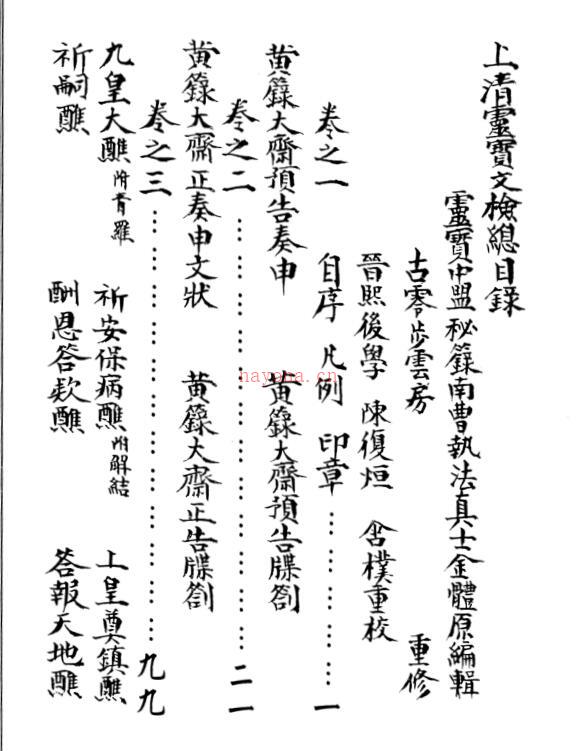 上清靈寶文檢總目錄
靈寶中盟秘籙南曹執法真士金體原編輯
古零步雲房 重修
晉熙後學 陳復烜 含樸重校
自序 凡例 印章……………一
卷之一
黃籙大齋預告奏申 黃籙大齋預告牒劄
卷之二……………二一
黃籙大齋正奏申文狀 黃籙大齋正告牒劄
卷之三……………九九
九皇大醮附青羅 祈安保病醮附解結 上皇奠鎮醮
祈嗣醮 酬恩答欵醮 答報天地醮
nayona.cn